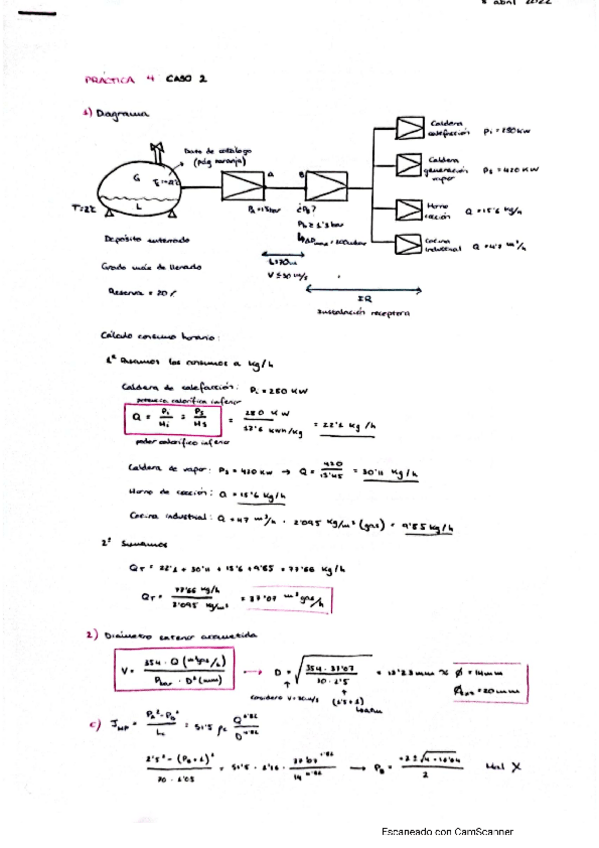 8 abril 2022
PRÁCTICA 4 CASO 2
1) Diagrama
Dato de catálogo
(pág naranja)
G
L
T=2℃
Depósito enterrado
Grado máx de llenado
Reserva = 20%
A
B
P₁ = 1'5 bar
¿PB?
L=70m
V ≤ 30 m/s
ΣQ
Instalación receptora
Caldera
calefacción Pi = 280 KW
Caldera
generación
vapor Ps = 420 KW
Horno
cocción Q = 15'6 kg/h
Cocina
industrial Q = 4'7 m³/h
Cálculo consumo horario:
1º Pasamos los consumos a kg/h
Caldera de calefacción: Pi = 280 KW
potencia calorífica inferior
Q = Pi/Hi = Ps/Hs = 280 KW / 12'6 KWh/kg = 22'2 kg/h
poder calorífico inferior
Caldera de vapor: Ps = 420 KW → Q = 420/13'95 = 30'11 kg/h
Horno de cocción: Q = 15'6 kg/h
Cocina industrial: Q = 4'7 m³/h · 2'095 kg/m³ (gas) = 9'85 kg/h
2º Sumamos
QT = 22'2 + 30'11 + 15'6 + 9'85 = 77'66 kg/h
QT = 77'66 kg/h / 2'095 kg/m³ = 37'07 m³gas/h
2) Diámetro interior acometida
V = 354 · Q (m³gas/h) / Pbar · D² (mm) → D = √(354 · 37'07 / 30 · 2'5) = 13'23 mm ≈ Ø = 14mm
considero V = 30 m/s
(1'5+1)
= 20mm
c) JMP = PA² - PB² / L = 51'5 Q^1'82 / D^4'82
2'5² - (PB + 1)² / 70 · 1'05 = 51'5 · 1'16 · 37'07^1'82 / 14^4'82 → PB = / 2 Mal X
Escaneado con CamScanner